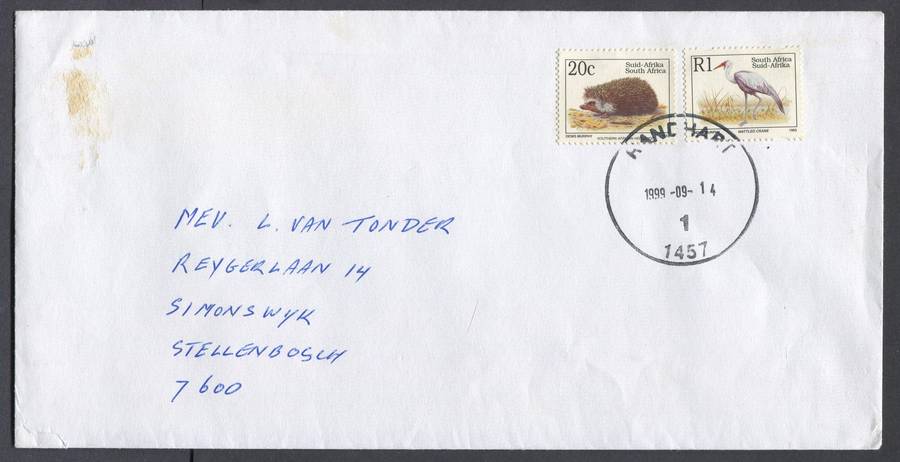 20c
Suid-Afrika
South Africa
DENIS MURPHY
R1
South Africa
Suid-Afrika
WATTLED CRANE 1993
RANDHART
1999-09-14
1
1457
MEV. L. VAN TONDER
REYGERLAAN 14
SIMONSWYK
STELLENBOSCH
7600